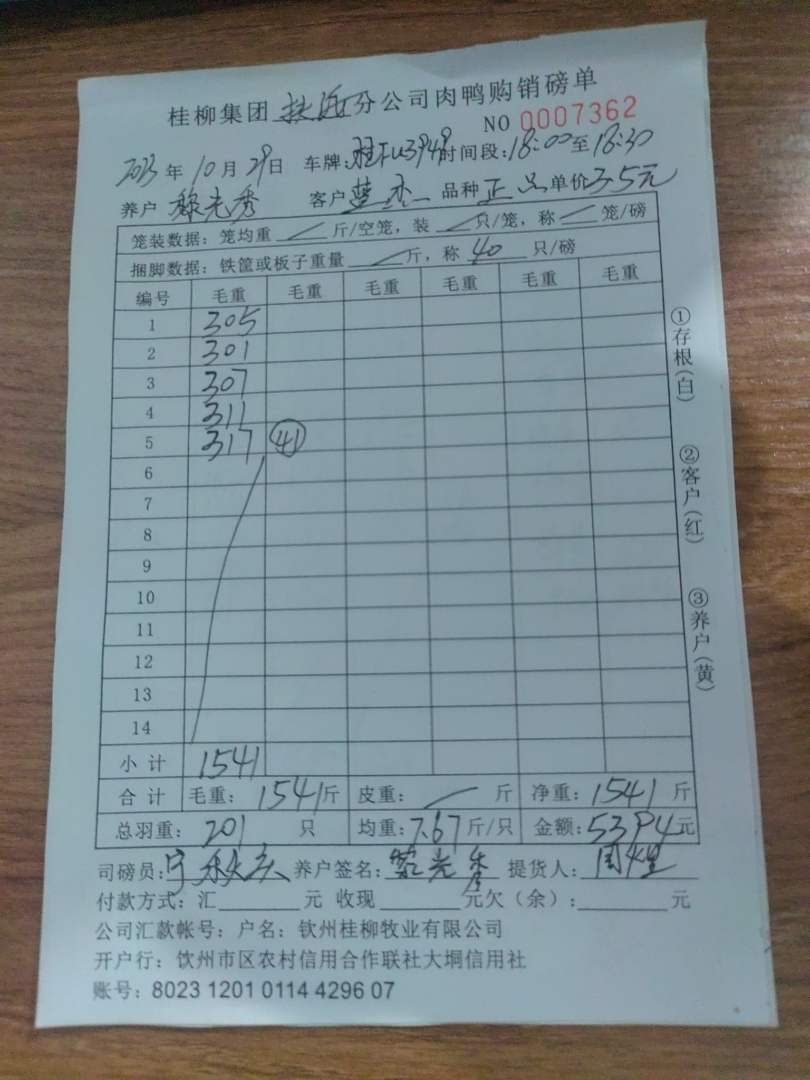 桂柳集团 分公司肉鸭购销磅单
NO 0007362
2023 年 10 月 29 日 车牌: 时间段: 18:00 至 18:30
养户 黎光秀 客户 蓝杰一 品种 正品 单价 3.5元
笼装数据: 笼均重 斤/空笼, 装 只/笼, 称 笼/磅
捆脚数据: 铁筐或板子重量 斤, 称 40 只/磅
编号 毛重 毛重 毛重 毛重 毛重 毛重
1 305
2 301
3 307
4 311
5 317 41
6
7
8
9
10
11
12
13
14
小计 1541
合计 毛重: 1541斤 皮重: 斤 净重: 1541 斤
总羽重: 201 只 均重: 7.67 斤/只 金额: 5394 元
司磅员: 养户签名: 黎光秀 提货人:
付款方式: 汇 元 收现 元欠(余): 元
公司汇款帐号: 户名: 钦州桂柳牧业有限公司
开户行: 饮州市区农村信用合作联社大垌信用社
账号: 8023 1201 0114 4296 07
①存根(白)
②客户(红)
③养户(黄)